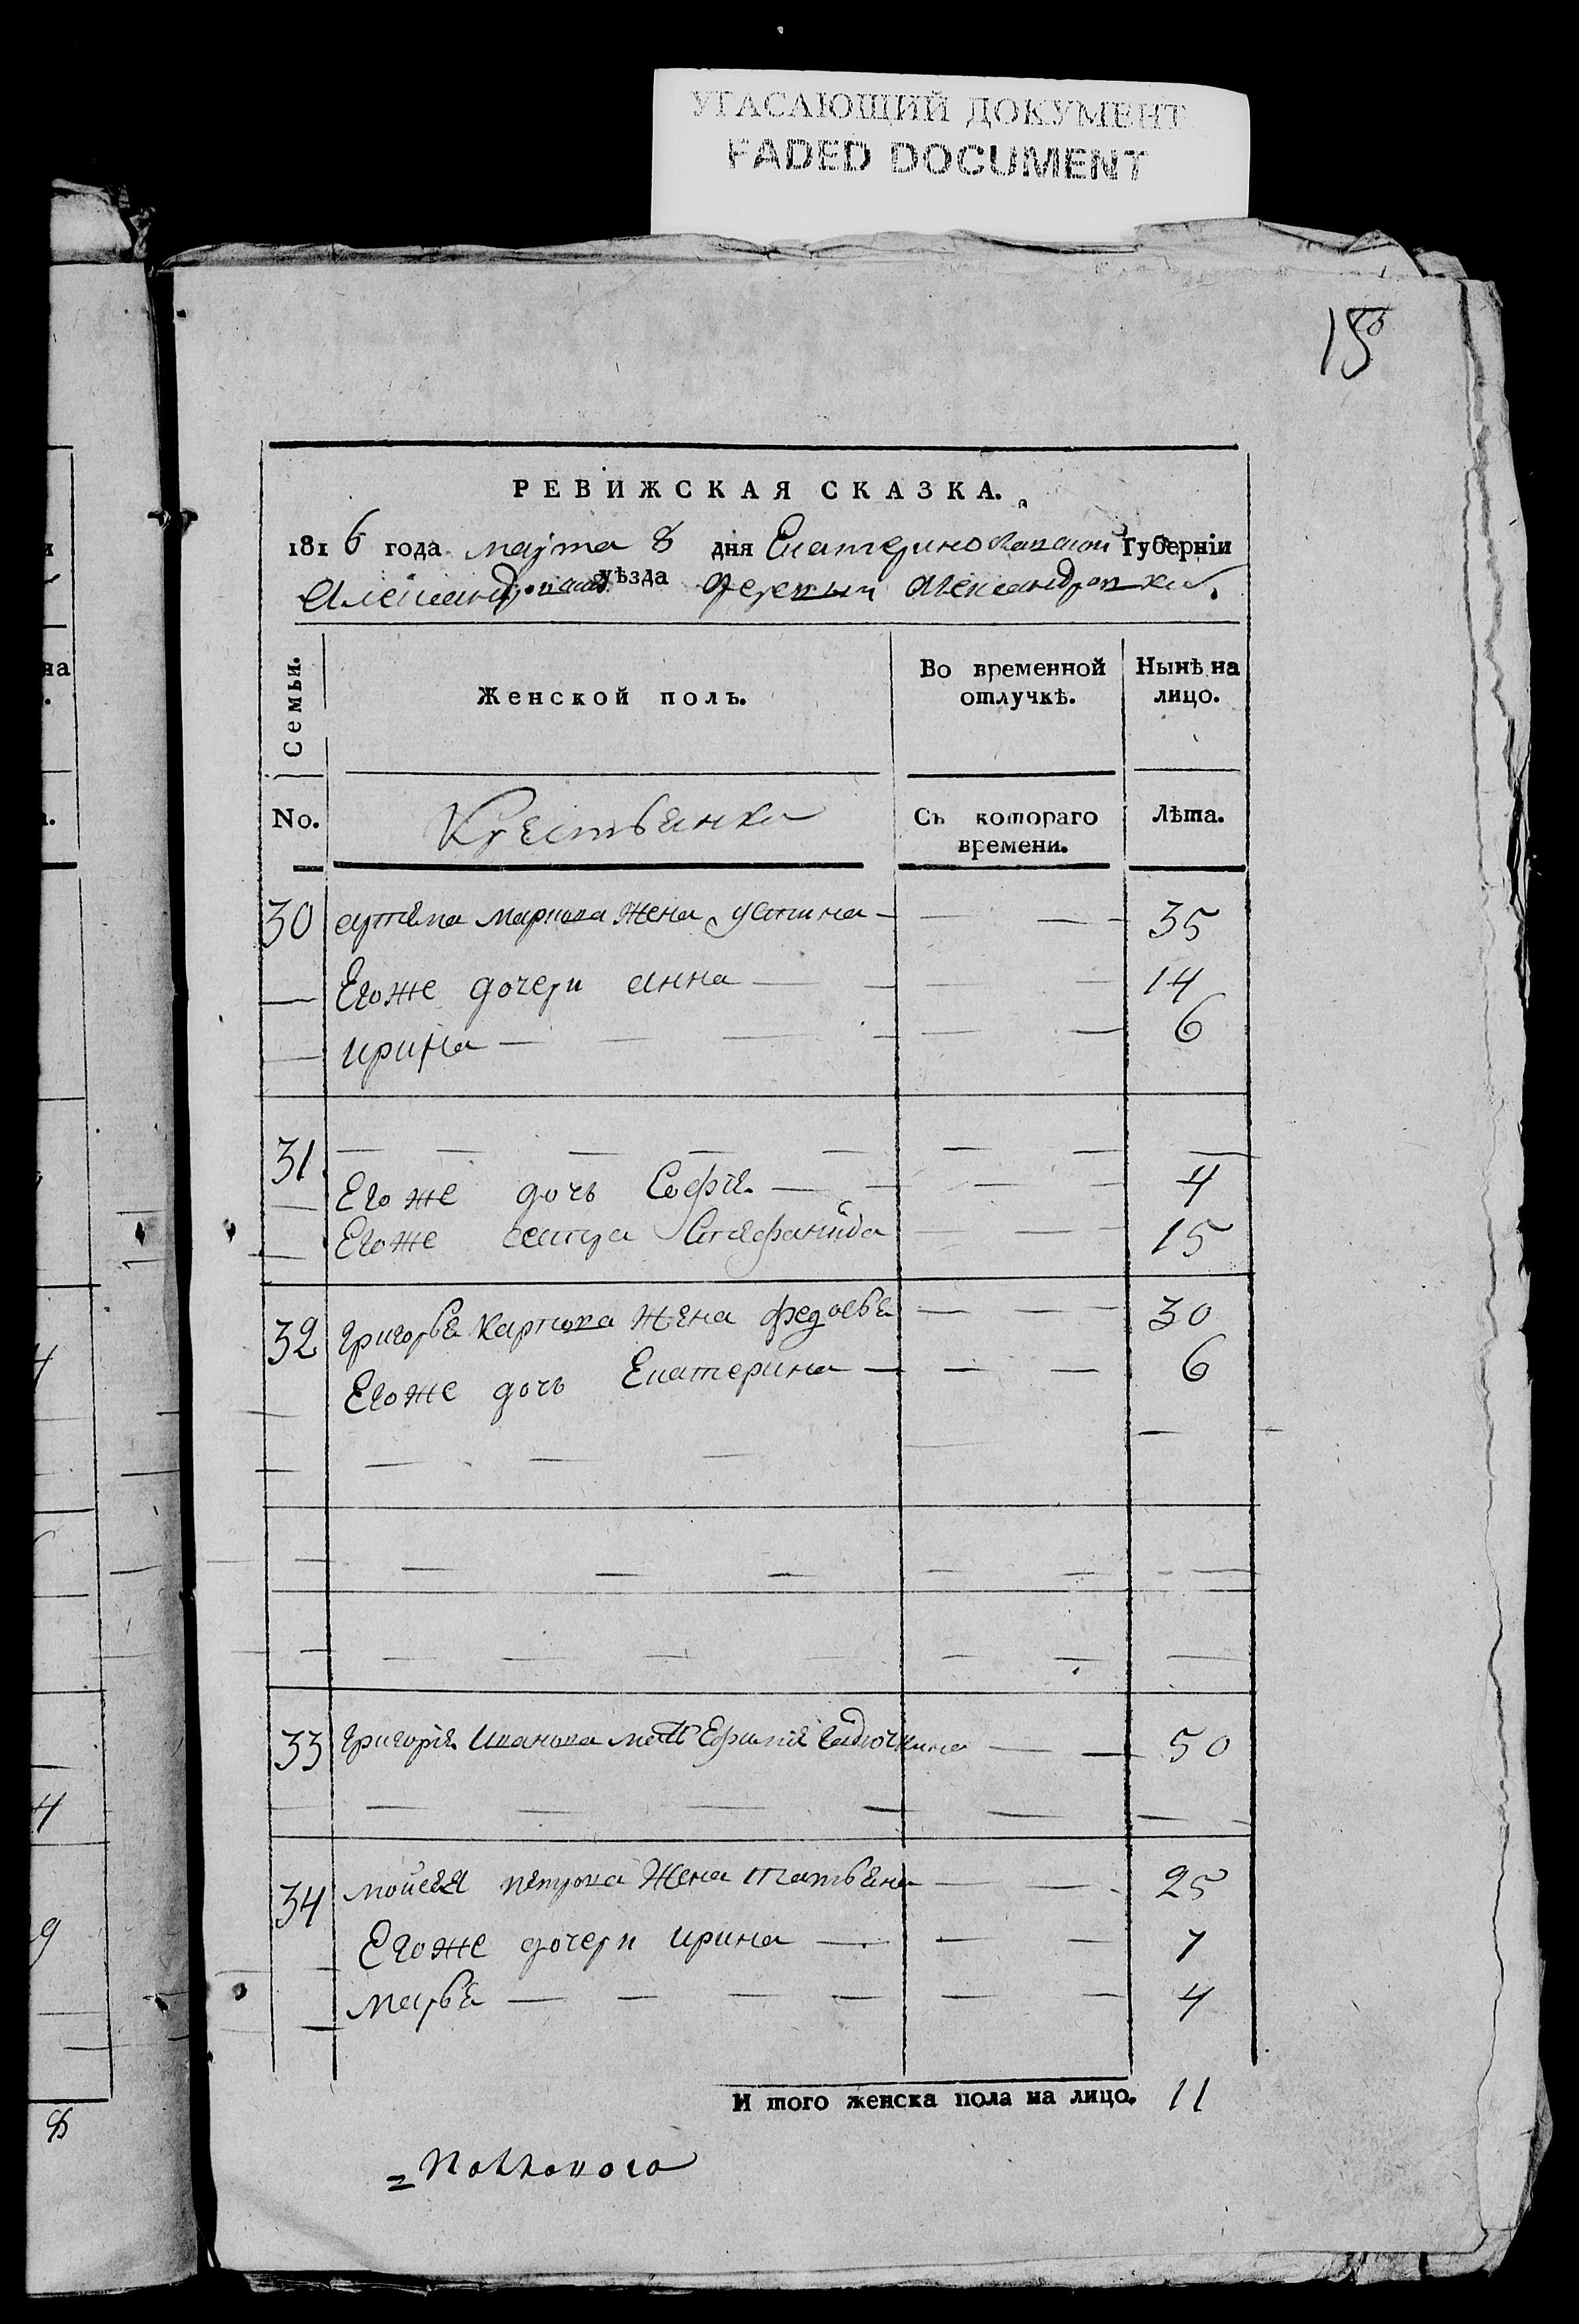 УГАСАЮЩИЙ ДОКУМЕНТ
FADED DOCUMENT
15
РЕВИЖСКАЯ СКАЗКА.
1816 года марта 8 дня Екатеринославской Губерніи
Александровскаго уѣзда деревни Александровки.
Семьи.
Женской полъ.
Во временной отлучкѣ.
Нынѣ на лицо.
No.
Крестьянка
Съ котораго времени.
Лѣта.
30 артема маркова жена устина — — — 35
— Егоже дочери анна — — — — 14
— ирина — — — — — — 6
31 — — — — — — — —
— Его же дочь Софія — — — — 4
— Егоже сестра Стефанида — — — 15
32 григорья карпова жена федосья — — — 30
Егоже дочь Екатерина — — — 6
33 григорія Иванова мать Ефимія — — 50
34 мойсея петрова жена татьяна — — 25
Егоже дочери ирина — — — 7
марья — — — — — — 4
И того женска пола на лицо. 11